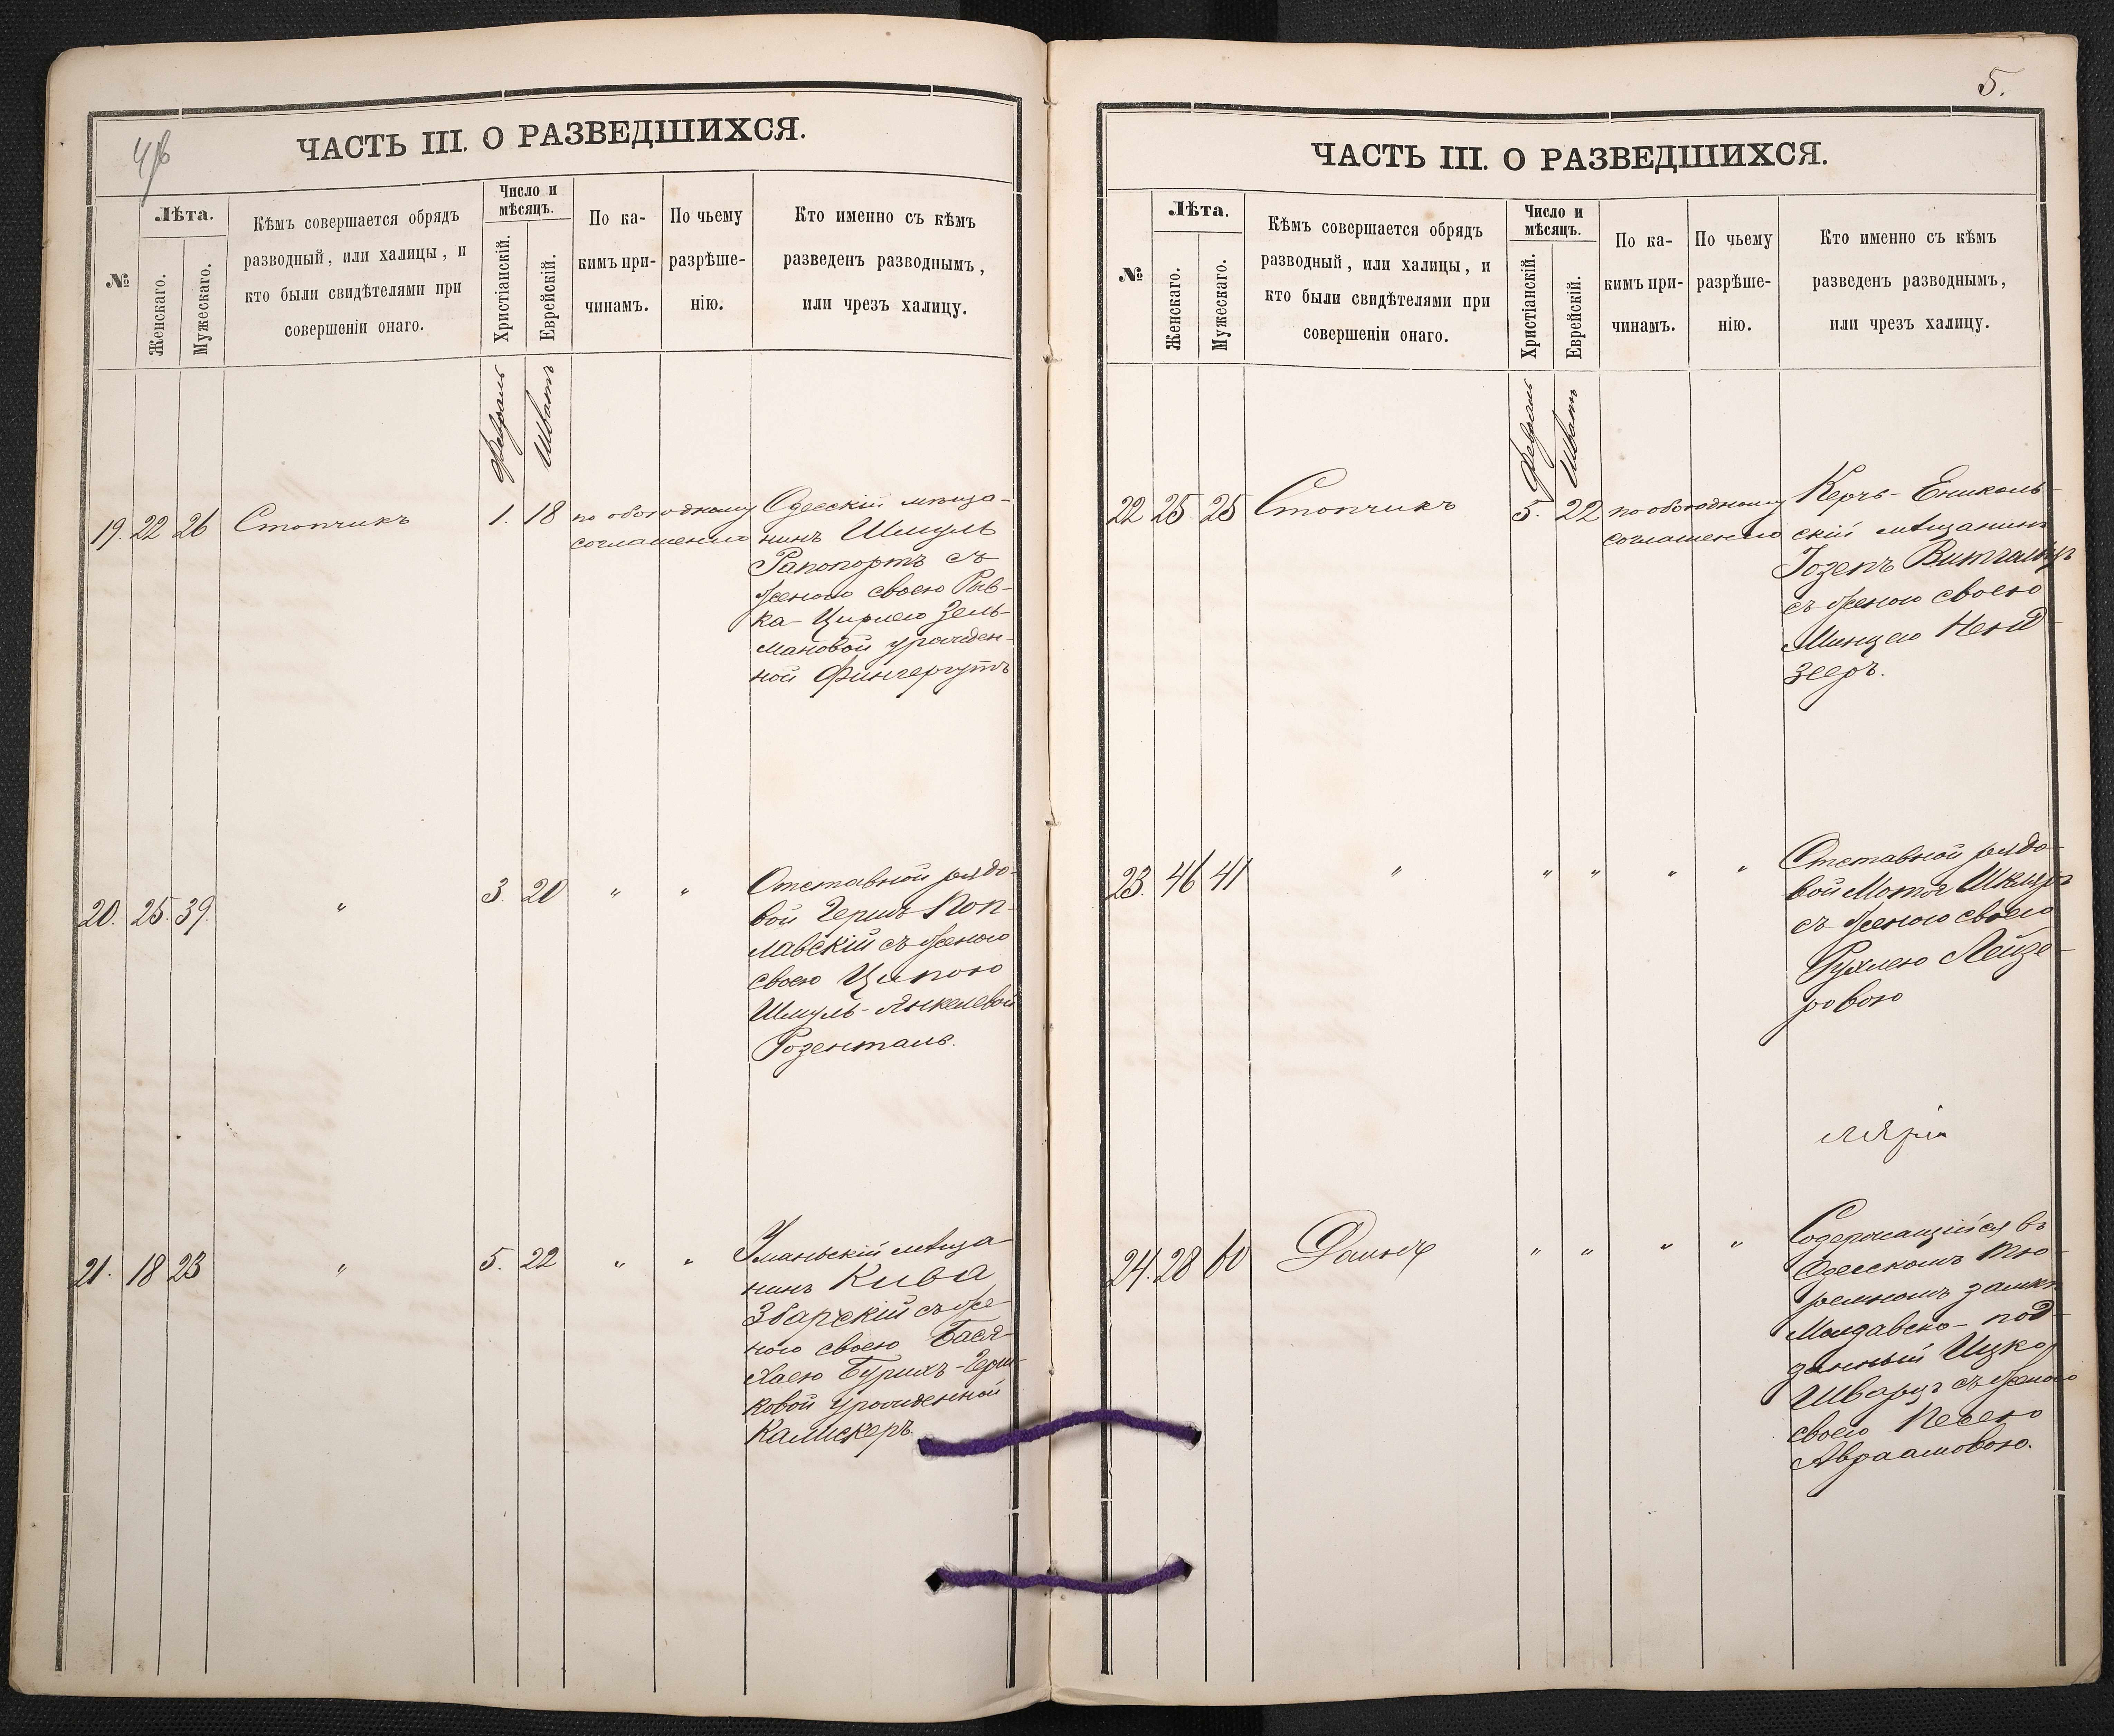 ЧАСТЬ III. О РАЗВЕДШИХСЯ.
№
Лѣта.
Женскаго.
Мужескаго.
Кѣмъ совершается обрядъ
разводный, или халицы, и
кто были свидѣтелями при
совершеніи онаго.
Число и
мѣсяцъ.
Христіанскій.
Еврейскій.
По ка-
кимъ при-
чинамъ.
По чьему
разрѣше-
нію.
Кто именно съ кѣмъ
разведенъ разводнымъ,
или чрезъ халицу.
Февраль
Шватъ
19. 22 26 Стопчикъ 1. 18 по обоюдному
соглашенію
Одесскій мѣща-
нинъ Шмуль
Рапопортъ съ
женою своею Рыв-
ка-Цирлею Зель-
мановой урожден-
ной Фингергутъ
20. 25. 39. " 3. 20 " "
Отставной рядо-
вой Гершъ Поп-
лавскій съ женою
своею Ципою
Шмуль-Янкелевой
Розенталь.
21. 18 23 " 5. 22 " "
Уманьскій мѣща-
нинъ Кива
Збарскій съ же-
ною своею Бася-
Хаею Бурихъ-Герш-
ковой урожденной
Калискеръ
5.
ЧАСТЬ III. О РАЗВЕДШИХСЯ.
№
Лѣта.
Женскаго.
Мужескаго.
Кѣмъ совершается обрядъ
разводный, или халицы, и
кто были свидѣтелями при
совершеніи онаго.
Число и
мѣсяцъ.
Христіанскій.
Еврейскій.
По ка-
кимъ при-
чинамъ.
По чьему
разрѣше-
нію.
Кто именно съ кѣмъ
разведенъ разводнымъ,
или чрезъ халицу.
Февраль
Шватъ
22 25. 25 Стопчикъ 5. 22 по обоюдному
соглашенію
Керчь-Ениколь-
скій мѣщанинъ
Іозепъ
съ женою своею
Минцею Ней-
зеръ.
23. 46 41 " " " " "
Отставной рядо-
вой Мотя Шкляръ
съ женою своею
Рухлею Лейзе-
ровою
24. 28 60 " " " "
Содержащійся въ
Одесскомъ тю-
ремномъ замкѣ
Молдавско-под-
данный Ицко
Шварцъ съ женою
своею Песею
Авраамовою.